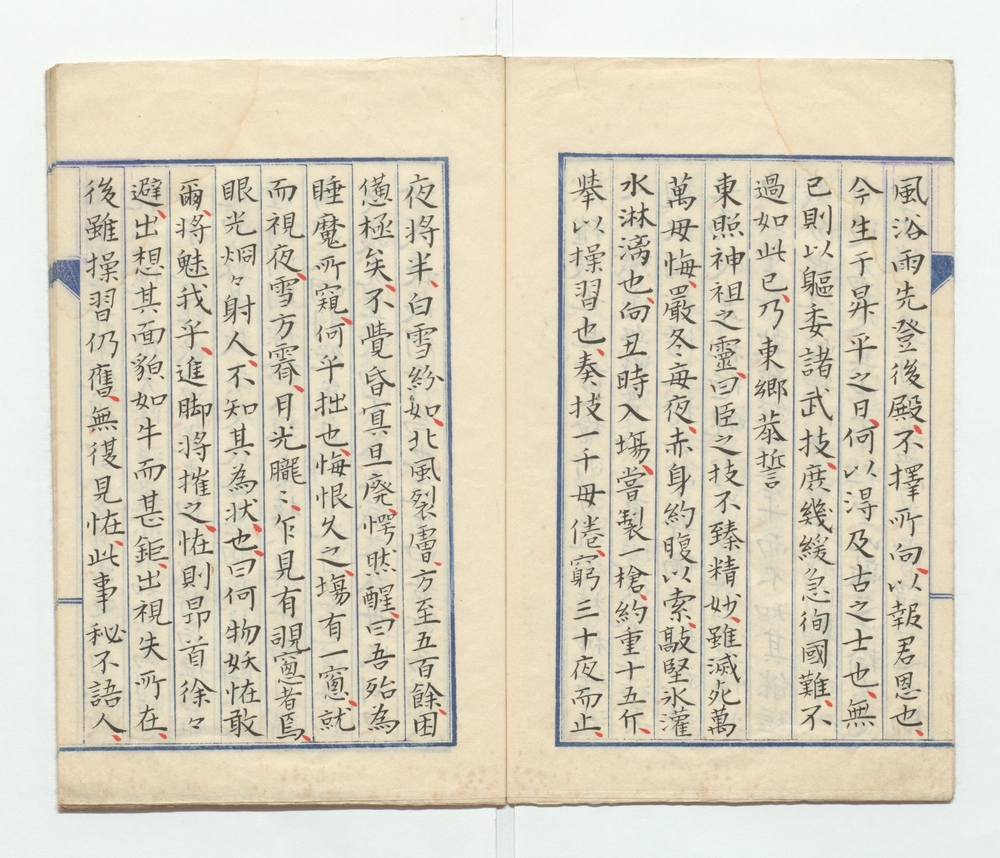 風浴雨先登後殿、不擇所向、以報君恩也、
今生于昇平之日、何以淂及古之士也、無
已則以軀委諸武技、庶幾緩急徇國難、不
過如此已、乃東郷恭誓
東照神祖之靈、曰臣之技不臻精妙、雖滅死萬
萬毋悔、嚴冬每夜、赤身約腹以索、敲堅氷灌
水淋漓也、向丑時入塲、嘗製一槍、約重十五斤、
挙以操習也、奏技一千毋倦、窮三十夜而止、
夜将半、白雪紛如、北風裂膚、方至五百餘、困
憊極矣、不覺昏冥且廃、愕然醒、曰吾殆為
睡魔所窺、何乎拙也、悔恨久之、塲有一窻、就
而視夜、雪方霽、月光朧〻、乍見有覘窻者焉、
眼光烱々射人、不知其為状也、曰何物妖恠敢
爾、将魅我乎、進脚将摧之、恠則昻首徐々
避出、想其面貌如牛而甚鉅、出視失所在、
後雖操習仍舊、無復見恠、此事秘不語人、